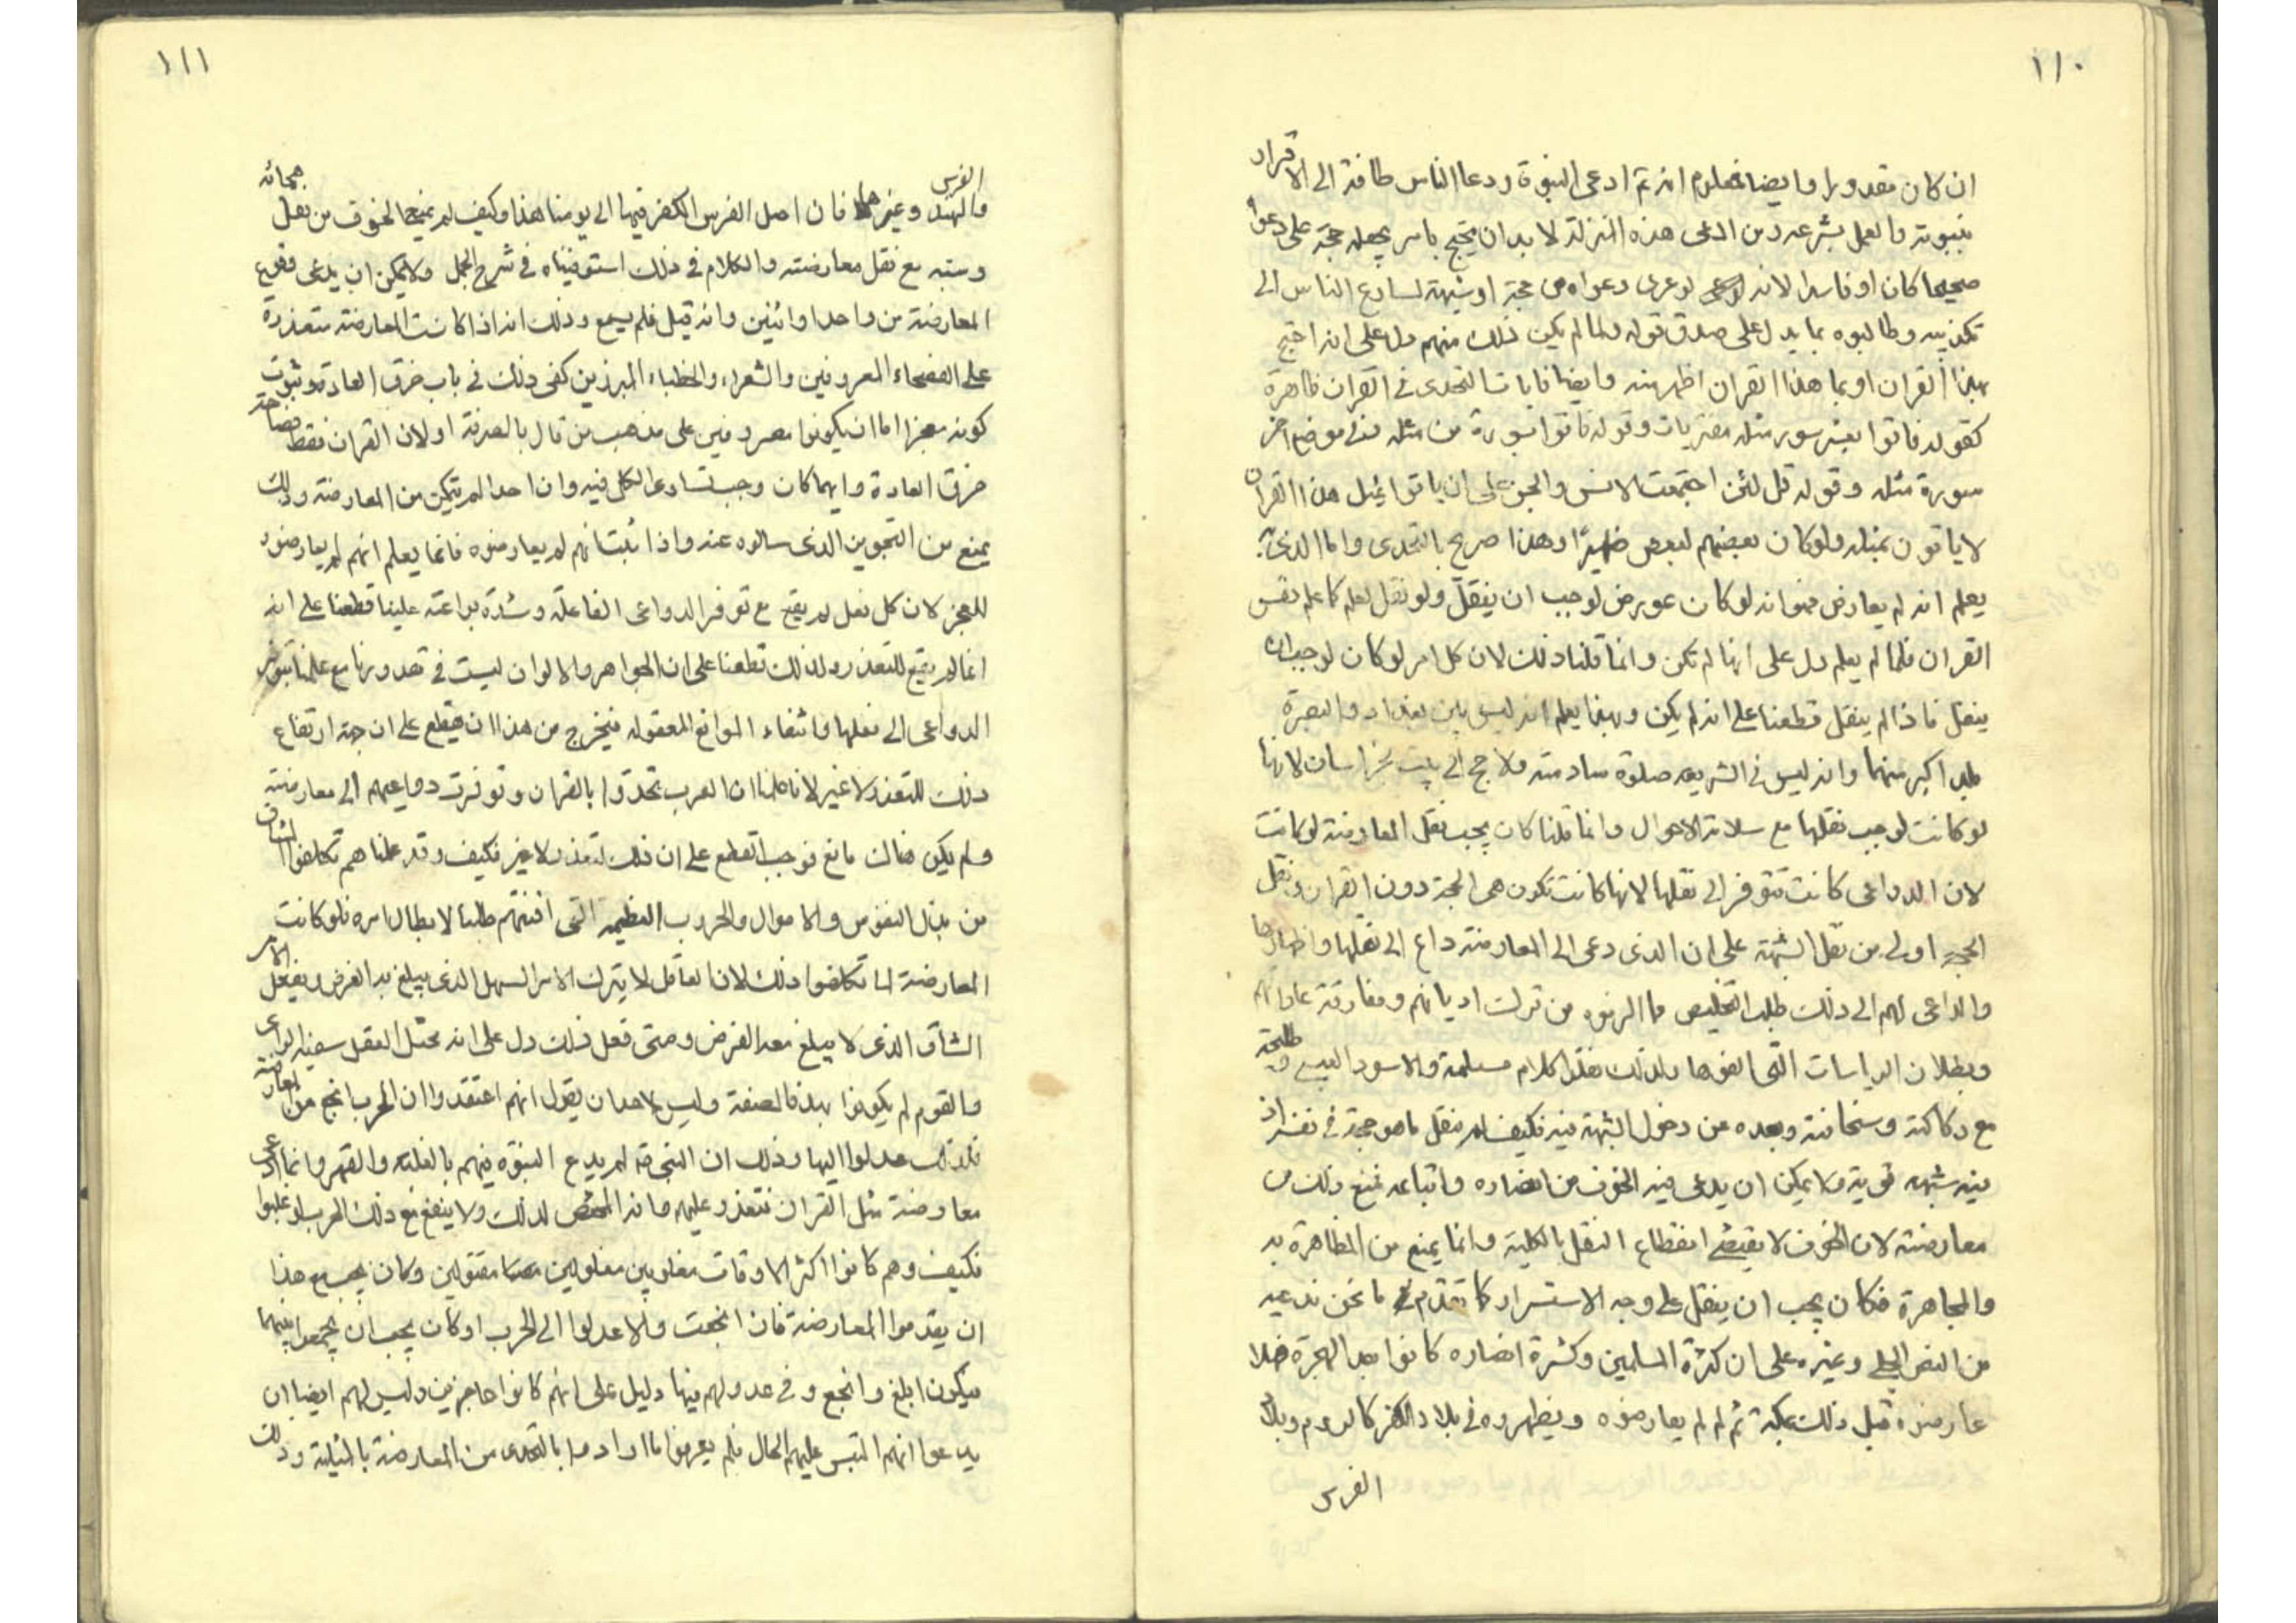 ١١٠
ان كان مقدورا وايضا فمعلوم انه تم ادعى النبوة ودعا الناس طافة الى الاقرار
بنبوته والعمل بشرعه ومن ادعى هذه المنزلة لا بد ان يحتج بامر يجعله حجة على دعواه
صحيحا كان او فاسدا لانه لو عرى دعواه من حجة او شبهة لسارع الناس الى
تكذيبه وطالبوه بما يدل على صدق قوله ولما لم يكن ذلك منهم دل على انه احتج
بهذا القران او بما هذا القران اظهر منه وايضا فايات التحدى في القران ظاهرة
كقوله فاتوا بعشر سور مثله مفتريات وقوله فاتوا بسورة من مثله وفي موضع اخر
سورة مثله وقوله قل لئن اجتمعت الانس والجن على ان ياتوا بمثل هذا القران
لا ياتون بمثله ولو كان بعضهم لبعض ظهيرًا وهذا صريح بالتحدى واما الذى به
يعلم انه لم يعارض فهو انه لو كان عورض لوجب ان ينقل ولو نقل لعلم كما علم نفس
القران فلما لم يعلم دل على انها لم تكن وانما قلنا ذلك لان كل امر لو كان لوجب ان
ينقل فاذا لم ينقل قطعنا على انه لم يكن وبهذا يعلم انه ليس بين بغداد والبصرة
بلد اكبر منهما وانه ليس في الشريعه صلوة سادسته ولا حج الى بيت بخراسان لانها
لو كانت لوجب نقلها مع سلامة الاحوال وانما قلنا كان يجب نقل المعارضة لو كانت
لان الدواعى كانت تتوفر الى نقلها لانها كانت تكون هى الحجة دون القران ونقل
الحجة اولى من نقل الشبهة على ان الذى دعى الى المعارضة داع الى نقلها واظهارها
والداعى لهم الى ذلك طلب التخليص مما الزموه من ترك اديانهم ومفارقة عاداتهم
وبطلان الرياسات التى الفوها ولذلك نقلوا كلام مسيلمة والاسود العنسى وطليحة
مع ركاكته وسخافته وبعده من دخول الشبهة فيه فكيف لم ينقل ما هو حجة في نفسه او
فيه شبهه قوية ولا يمكن ان يدعى فيه الخوف من انصاره واتباعه فمنع ذلك من
معارضته لان الخوف لا يقتضى انقطاع النقل بالكلية وانما يمنع من المظاهرة به
والمجاهرة فكان يجب ان ينقل على وجه الاستسرار كما تقدم ما نحن ندعيه
من النص الجلى وغيره على ان كثرة المسلمين وكثرة انصاره كانوا بعد الهجرة فهلا
عارضوه قبل ذلك بمكة ثم لم لم يعارضوه ويظهروه في بلاد الكفر كالروم وبلاد
الفرس
١١١
الفرس
والهند وغيرها فان اصل الفرس الكفر فيها الى يومنا هذا وكيف لم يمنع الخوف من نقل هجائه
وسبه مع نقل معارضته والكلام في ذلك استوفيناه في شرح الجمل ولا يمكن ان يدعى وقوع
المعارضة من واحد او اثنين وانه قتل فلم يسمع وذلك انه اذا كانت المعارضة متعذرة
على الفصحاء المعروفين والشعراء والخطباء المبرزين كفى ذلك في باب خرق العادة وثبوت
كونه معجزا اما ان يكونوا مصروفين على مذهب من قال بالصرفة او لان القران فقط فصاحته
خرق العادة وايهما كان وجب تساوى الكل فيه وان احدا لم يتمكن من المعارضة وذلك
يمنع من التجويز الذى سالوه عنه واذا ثبت انهم لم يعارضوه فانما يعلم انهم لم يعارضوه
للعجز لان كل فعل لم يقع مع توفر الدواعى الفاعلة وشدة براعته علينا قطعنا على انه
انما لم يقع للتعذر ولذلك قطعنا على ان الجواهر والالوان ليست في قدورنا مع علمنا بتوفر
الدواعى الى فعلها وانتفاء الموانع المعقوله فيخرج من هذا ان يقطع على ان جهة ارتفاع
ذلك للتعذر لا غير لانا علمنا ان العرب تحدوا بالقران وتوفرت دواعيهم الى معارضته
ولم يكن هناك مانع فوجب القطع على ان ذلك لتعذر لا غير فكيف وقد علمناهم تكلفوا المشاق
من بذل النفوس والاموال والحروب العظيمه التى افنتهم طلبا لابطال امره فلو كانت
المعارضة لما تكلفوا ذلك لان العاقل لا يترك الامر السهل الذى يبلغ به الغرض ويفعل الامر
الشاق الذى لا يبلغ معه الغرض ومتى فعل ذلك دل على انه مختل العقل سفيه الراى
والقوم لم يكونوا بهذه الصفة وليس لاحد ان يقول انهم اعتقدوا ان الحرب انجع من المعارضة
فلذلك عدلوا اليها وذلك ان النبى لم يدع النبوة فيهم بالغلبة والقهر وانما ادعى
معارضة مثل القران فتعذر عليهم ولا ينفع مع ذلك الحرب لو غلبوا
فكيف وهم كانوا اكثر الاوقات مغلوبين مغلولين مقتولين وكان يجب مع هذا
ان يقدموا المعارضة فان انجحت والا عدلوا الى الحرب او كان يجب ان يجمعوا بينهما
فيكون ابلغ وانجع وفي عدولهم منها دليل على انهم كانوا عاجزين وليس لهم ايضا ان
يدعوا انهم التبس عليهم الحال فلم يعرفوا ما ارادوا بالتحدى من المعارضة بالمثلية وذلك